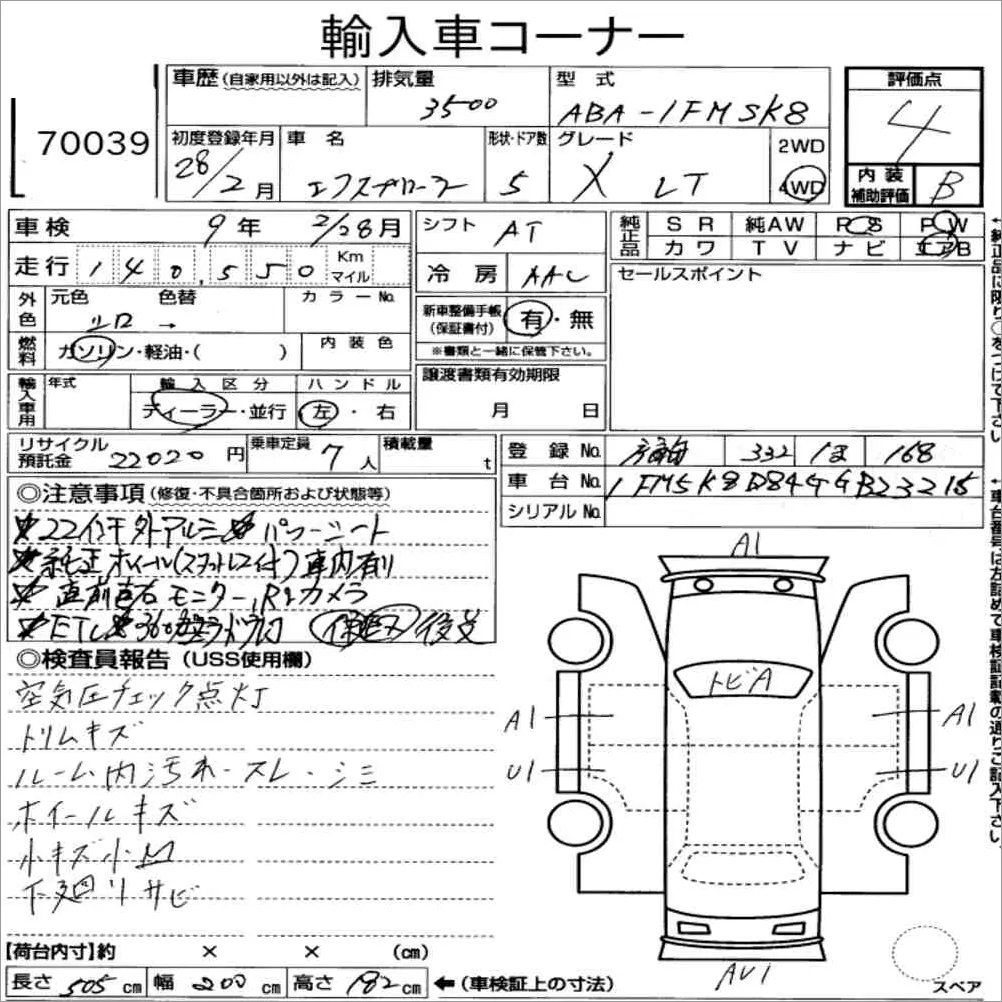 輸入車コーナー
70039
車歴(自家用以外は記入)
排気量
3500
型式
ABA-1FMSK8
評価点
4
初度登録年月
28/2月
車名
エクスプローラー
形状・ドア数
5
グレード
X LT
2WD
4WD
内装
補助評価
B
車検 9年 2/28月
シフト AT
純正品
SR 純AW PS PW
カワ TV ナビ エアB
走行 140,550 Km
マイル
冷房 AAC
セールスポイント
外色
元色 色替 カラーNo.
シロ →
新車整備手帳
(保証書付)
有・無
※書類と一緒に保管下さい。
燃料
ガソリン・軽油・( )
内装色
輸入車用
年式
輸入区分
ハンドル
ディーラー・並行
左・右
譲渡書類有効期限
月 日
リサイクル
預託金 22020円
乗車定員 7人
積載量 t
登録No. 332 は 168
車台No. 1FM5K8D84GGB23215
シリアルNo.
◎注意事項(修復・不具合箇所および状態等)
22インチ外アルミ パワーシート
純正ホイール(スタッドレス付)車内有り
直前直左モニター、Rカメラ
ETC 360 ドラレコ 後送
◎検査員報告(USS使用欄)
空気圧チェック点灯
トリムキズ
ルーム内汚れ・スレ・シミ
ホイールキズ
小キズ小凹
下廻りサビ
A1
トビA
A1 A1
U1 U1
AU1
スペア
【荷台内寸】約 × × (cm)
長さ 505 cm 幅 200 cm 高さ 182 cm ←(車検証上の寸法)
↑純正品に限り○をつけて下さい
↑車台番号は左詰めで車検証記載の通りご記入下さい。